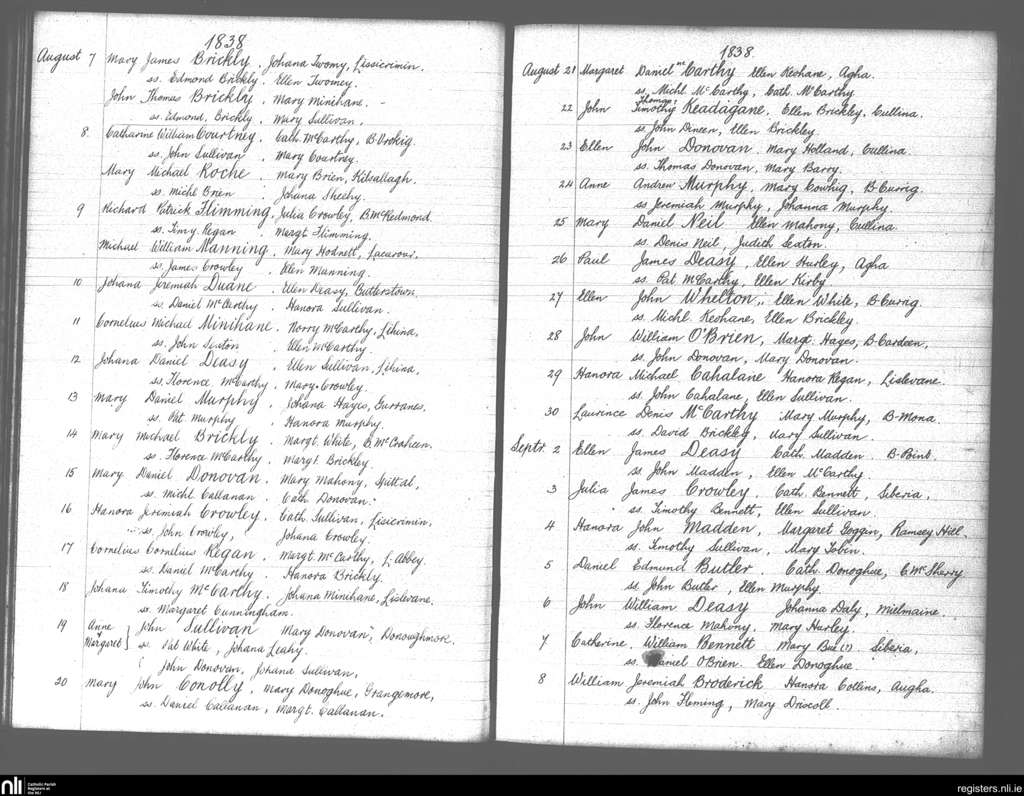 1838
August 7 Mary James Brickly. Johana Twomy, Lissicrimin.
ss. Edmond Brickly. Ellen Twomey.
John Thomas Brickly. Mary Minihane. -
ss. Edmond, Brickly. Mary Sullivan.
8. Catharine William Courtney. Cath. McCarthy, B.Vrokig.
ss. John Sullivan. Mary Courtney.
Mary Michael Roche. Mary Brien, Kilsallagh.
ss. Michl Brien. Johana Sheehy.
9 Richard Patrick Flimming. Julia Crowley, B.McRedmond.
ss. Timy Regan. Margt Flimming.
Michael William Manning. Mary Hodnett, Lacarour.
ss. James Crowley. Ellen Manning.
10 Johana Jeremiah Duane. Ellen Deasy, Butterstown.
ss. Daniel McCarthy. Hanora Sullivan.
11 Cornelius Michael Minihane. Norry McCarthy, Lihina,
ss. John Sexton. Ellen McCarthy.
12 Johana Daniel Deasy. Ellen Sullivan, Lihina,
ss. Florence McCarthy. Mary Crowley.
13 Mary Daniel Murphy. Johana Hayes, Gurranes,
ss. Pat Murphy. Hanora Murphy.
14 Mary Michael Brickly. Margt. White, C.McCraheen.
ss. Florence McCarthy. Margt. Brickley.
15 Mary Daniel Donovan. Mary Mahony, Spittal,
ss. Michl Callanan. Cath Donovan.
16 Hanora Jeremiah Crowley. Cath. Sullivan, Lisicrimin,
ss. John Crowley, Johana Crowley.
17 Cornelius Cornelius Regan. Margt. McCarthy, L.Abbey.
ss. Daniel McCarthy. Hanora Brickly.
18 Johana Timothy McCarthy. Johana Minihane, Lislevane.
ss. Margaret Cunningham.
19 Anne & Margaret } John Sullivan Mary Donovan, Donoughmore.
ss. Pat White, Johana Leahy.
John Donovan, Johana Sullivan,
20 Mary John Conolly, Mary Donoghue, Grangemore,
ss. Daniel Callanan, Margt. Callanan.
1838
August 21 Margaret Daniel McCarthy Ellen Keohane, Agha.
ss. Michl McCarthy, Cath. McCarthy
22 John Thomas Timothy Keadagane. Ellen Brickley, Cullina.
ss. John Dineen, Ellen Brickley.
23 Ellen John Donovan. Mary Holland, Cullina.
ss. Thomas Donovan, Mary Barry.
24 Anne Andrew Murphy, Mary Cowhig, B-Currig.
ss Jeremiah Murphy, Johanna Murphy.
25 Mary Daniel Neil Ellen Mahony, Cullina.
ss. Denis Neil, Judith Sexton.
26 Paul James Deasy, Ellen Hurley, Agha
ss. Pat McCarthy, Ellen Kirby.
27 Ellen John Whelton,, Ellen White, B-Currig.
ss. Michl. Keohane, Ellen Brickley.
28 John William O'Brien, Margt. Hayes, B-Cardeen,
ss. John Donovan, Mary Donovan.
29 Hanora Michael Cahalane Hanora Regan, Lislevane.
ss. John Cahalane, Ellen Sullivan.
30 Laurince Denis McCarthy Mary Murphy, B-Mona.
ss. David Brickley, Mary Sullivan.
Septr. 2 Ellen James Deasy Cath. Madden. B-Point.
ss John Madden, Ellen McCarthy.
3 Julia James Crowley. Cath. Bennett, Siberia,
ss. Timothy Bennett, Ellen Sullivan.
4 Hanora John Madden, Margaret Goggin, Ramsey Hill.
ss. Timothy Sullivan, Mary Tobin.
5 Daniel Edmund Butler. Cath. Donoghue, C.McSherry
ss. John Butler, Ellen Murphy.
6 John William Deasy Johanna Daly, Mielmaine.
ss. Florence Mahony, Mary Hurley.
7 Catherine. William Bennett Mary Siberia,
ss. Daniel O'Brien. Ellen Donoghue.
8 William Jeremiah Broderick Hanora Collins, Augha.
ss. John Fleming, Mary Driscoll.
nli Catholic Parish Registers at the NLI
registers.nli.ie